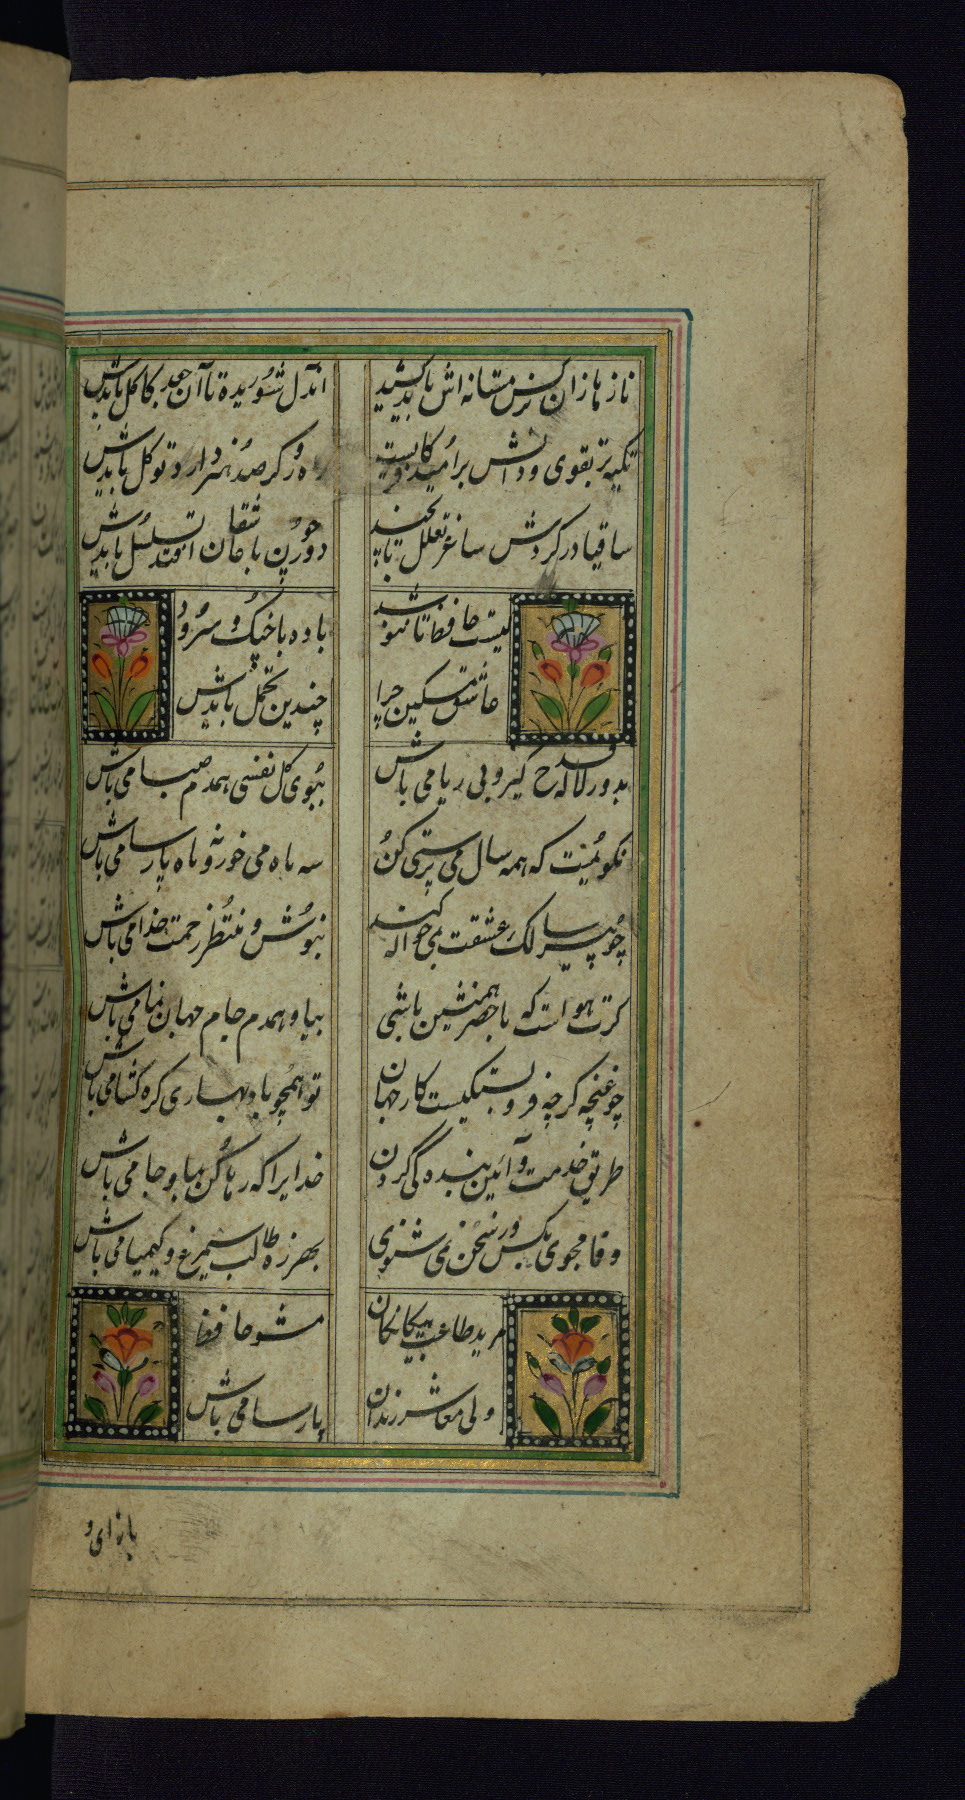 ناز ها زان نرکس مستانه اش باید کشید
اندل شوریده تا آن جعد کاکل بایدش
تکیه بر تقوی و دانش در
راه رو کر صد هنر دارد توکل بایدش
ساقیا در کردش ساغر تعلل تابچند
دور چون با عاشقان افتد تسلسل بایدش
کیست حافظ تا ننوشد
باده با چنک و سرود
عاشق مسکین چرا
چندین تحمل بایدش
بدور لاله قدح کیر و بی ریا می باش
ببوی کل نفسی همدم صبا می باش
نکویمت که همه سال می پرستی کن
سه ماه می خور و نه ماه پارسا می باش
چو پیر سالک عشقت بمی حواله کند
بنوش و منتظر رحمت خدا می باش
کرت هواست که با خضر همنشین باشی
بیا و همدم جام جهان نما می باش
چو غنچه کرچه فرو بستکیست کار جهان
تو همچو باد بهاری کره کشا می باش
طریق خدمت و آئین بنده کی کردن
خدایرا که رها کن بما و جا می باش
وفا مجوی بکس ور سخن نمی شنوی
بهرزه طالب سیمرغ و کیمیا می باش
مرید طاعت بیکانکان
مشو حافظ
ولی معاشر رندان
پارسا می باش
بازای و